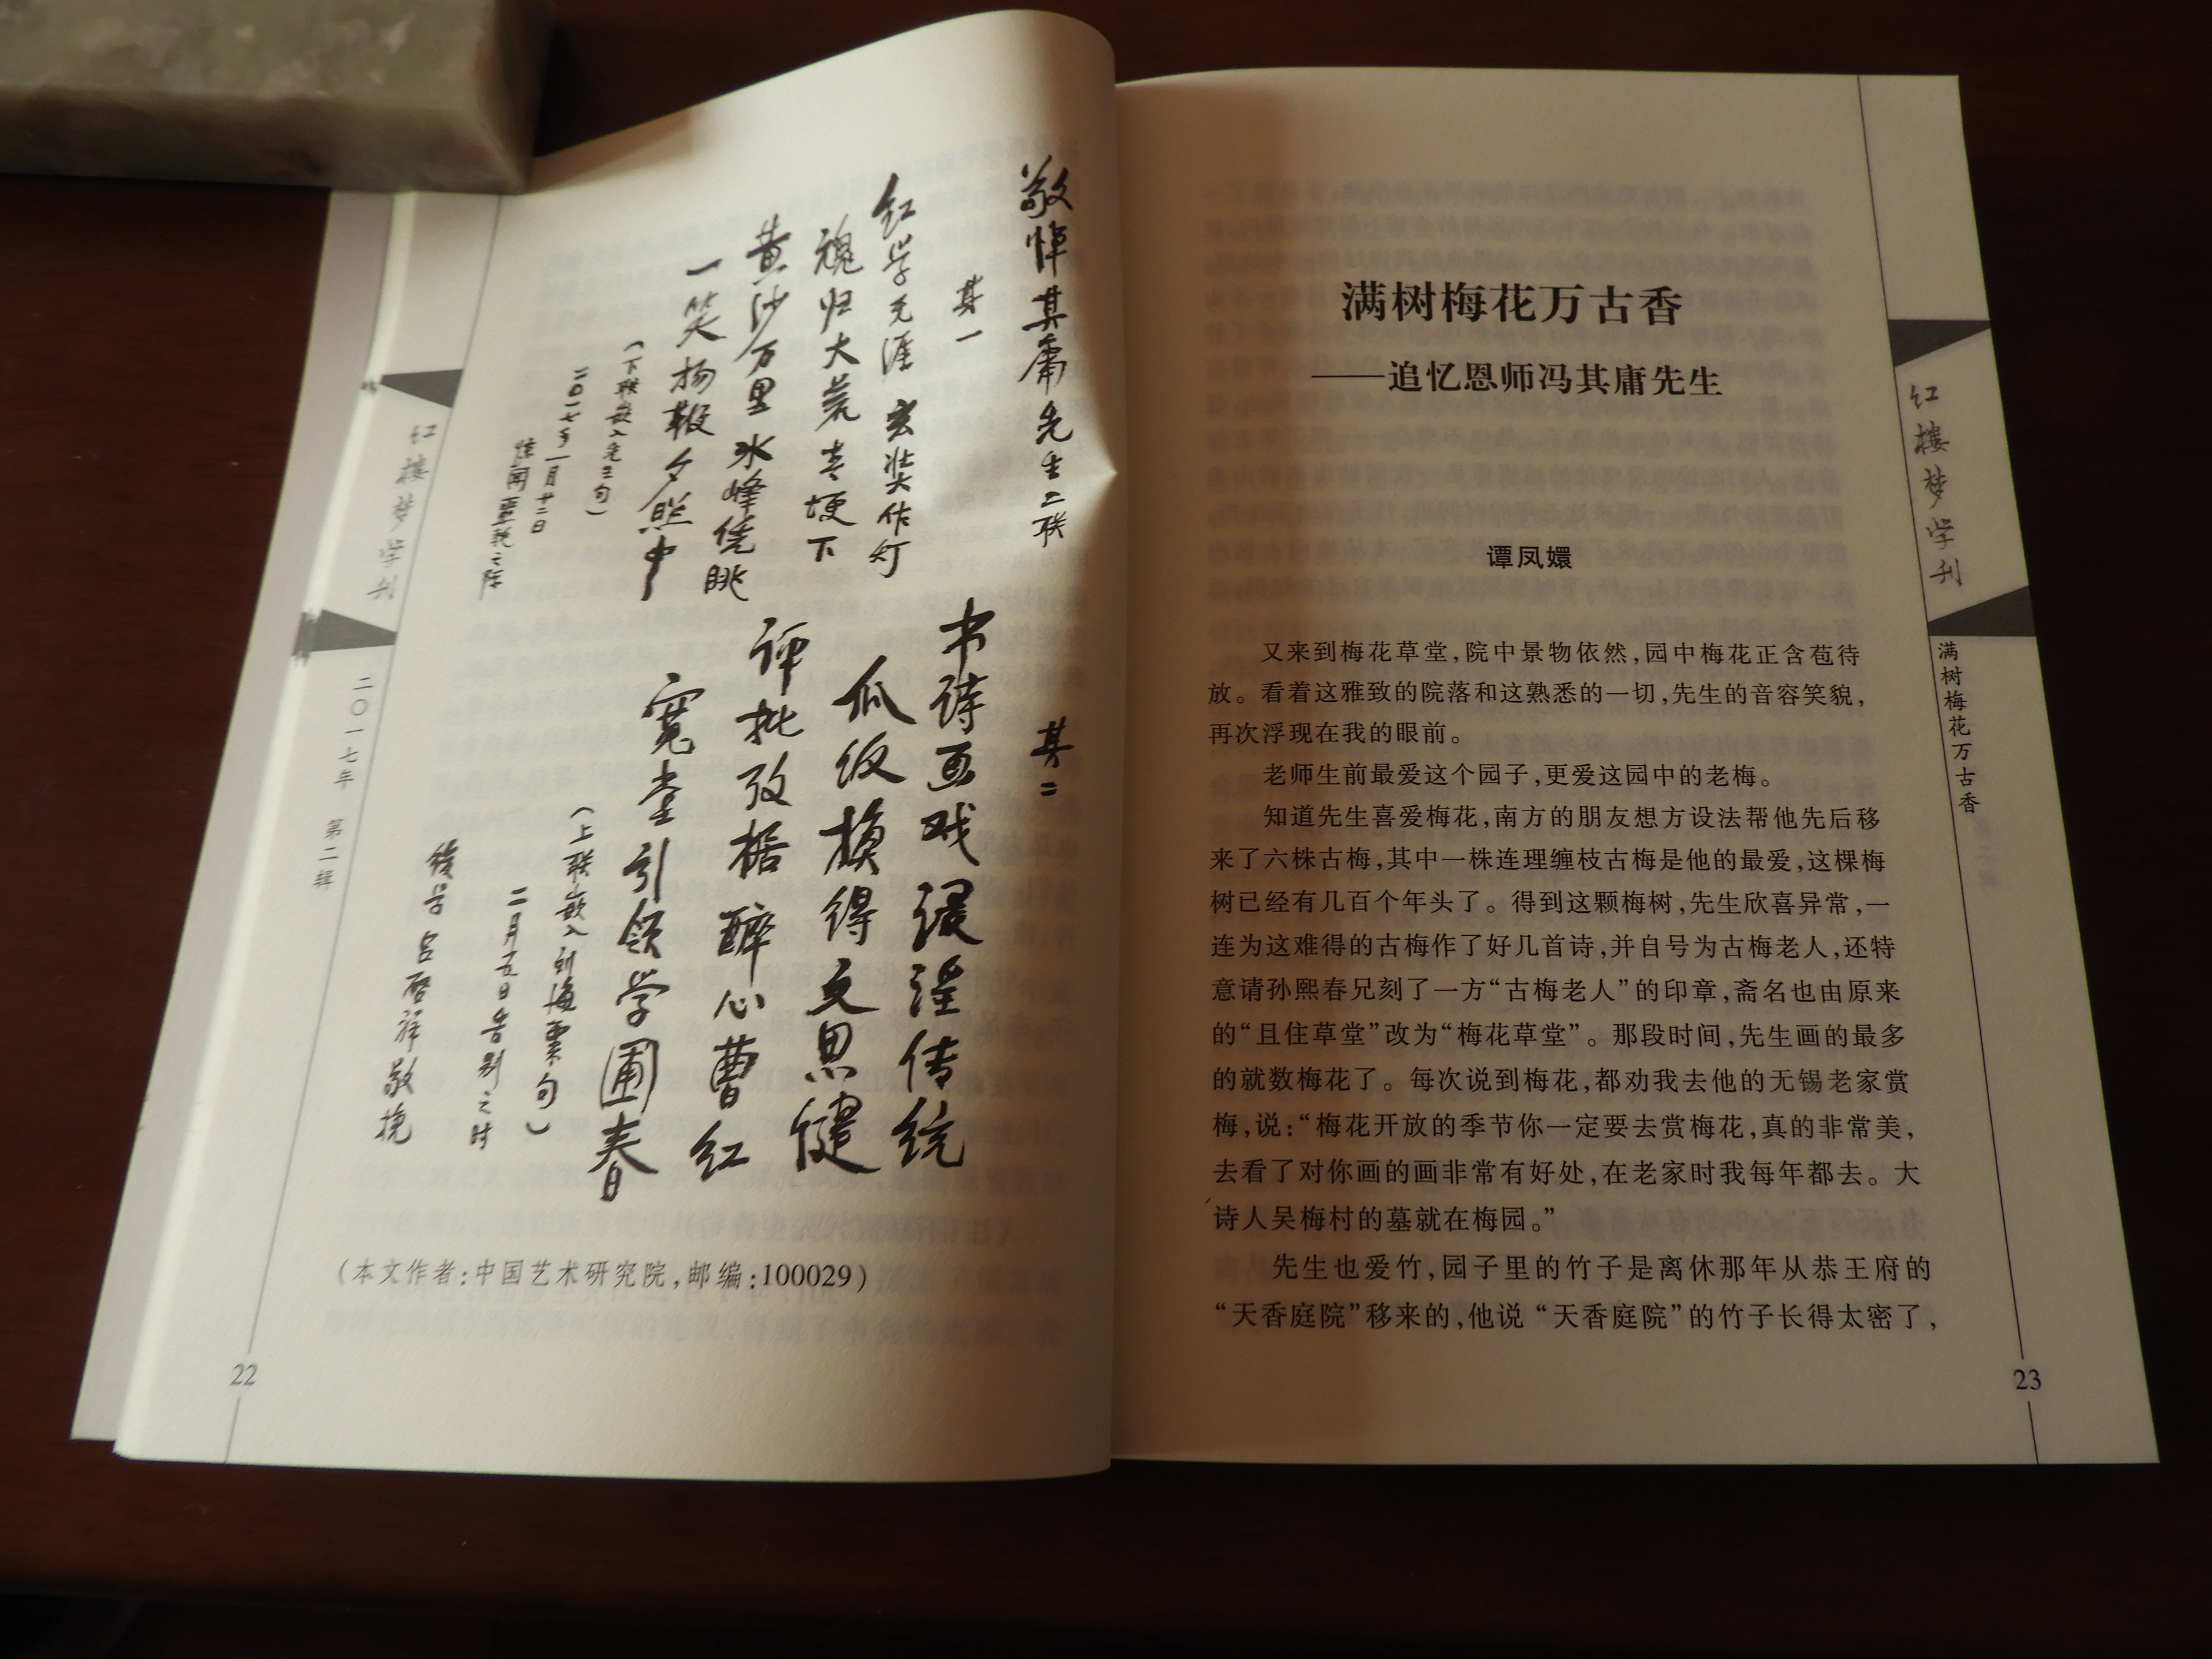 敬悼其庸先生二联
其一
红学无涯 玄奘作灯
魂归大荒青埂下
黄沙万里 冰峰凭眺
一笑扬鞭夕照中
（下联嵌入先生句）
二〇一七年一月廿二日
惊闻噩耗之际
其二
书诗画戏 浸淫传统
瓜饭换得文思健
评批考据 醉心曹红
宽堂引领学圃春
（上联嵌入刘海粟句）
二月五日告别之时
后学吕启祥敬挽
（本文作者：中国艺术研究院，邮编：100029）
红楼梦学刊
二〇一七年 第二辑
22
满树梅花万古香
——追忆恩师冯其庸先生
谭凤嬛
又来到梅花草堂，院中景物依然，园中梅花正含苞待
放。看着这雅致的院落和这熟悉的一切，先生的音容笑貌，
再次浮现在我的眼前。
老师生前最爱这个园子，更爱这园中的老梅。
知道先生喜爱梅花，南方的朋友想方设法帮他先后移
来了六株古梅，其中一株连理缠枝古梅是他的最爱，这棵梅
树已经有几百个年头了。得到这颗梅树，先生欣喜异常，一
连为这难得的古梅作了好几首诗，并自号为古梅老人，还特
意请孙熙春兄刻了一方“古梅老人”的印章，斋名也由原来
的“且住草堂”改为“梅花草堂”。那段时间，先生画的最多
的就数梅花了。每次说到梅花，都劝我去他的无锡老家赏
梅，说：“梅花开放的季节你一定要去赏梅花，真的非常美，
去看了对你画的画非常有好处，在老家时我每年都去。大
诗人吴梅村的墓就在梅园。”
先生也爱竹，园子里的竹子是离休那年从恭王府的
“天香庭院”移来的，他说“天香庭院”的竹子长得太密了，
红楼梦学刊
满树梅花万古香
23